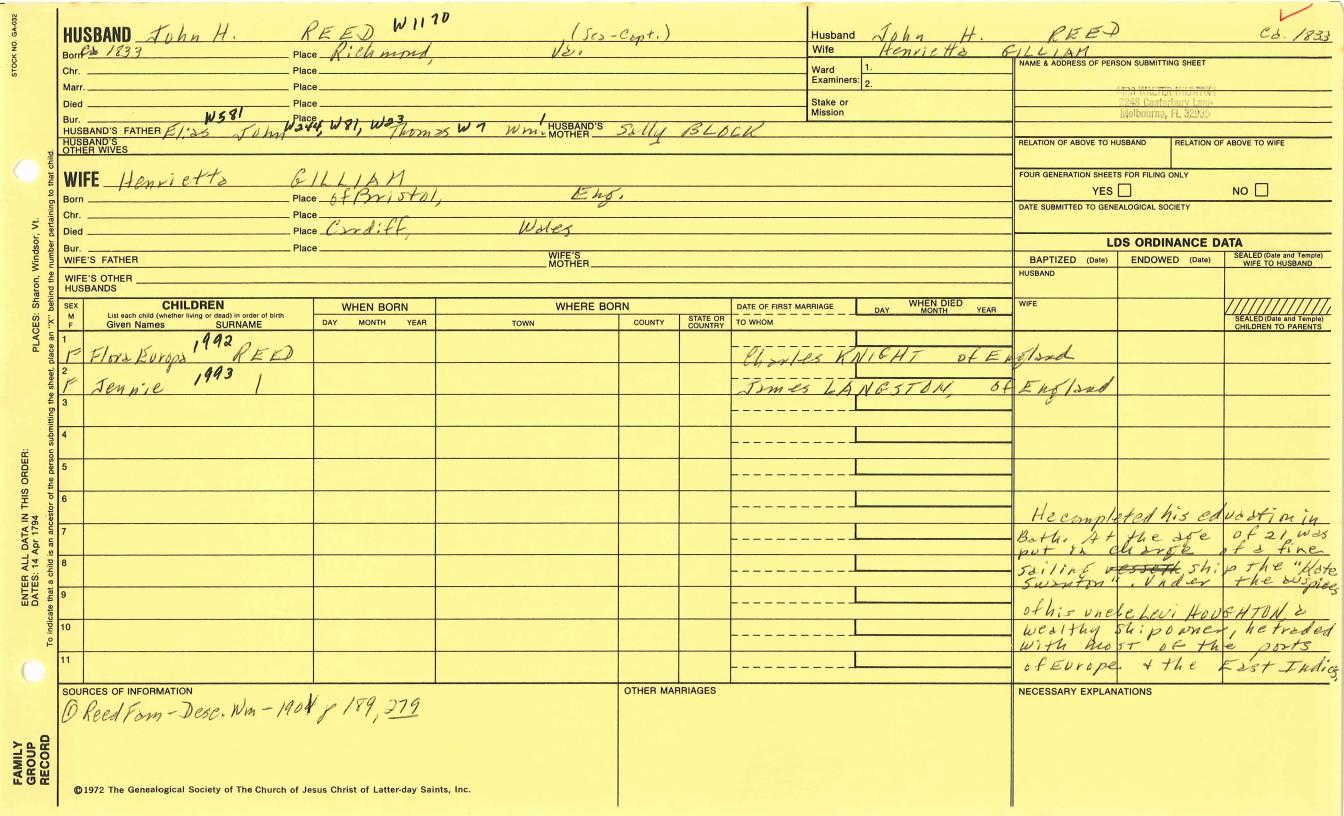 STOCK NO. GA-032
HUSBAND John H. REED W1170 (Sea-Capt.)
Born Ca 1833 Place Richmond, Va.
Chr. Place
Marr. Place
Died Place
Bur. Place
HUSBAND'S FATHER Elias W581 John W244, W81, W23 Thomas W7 Wm.1 HUSBAND'S MOTHER Sally BLOCK
HUSBAND'S OTHER WIVES
Husband John H. REED Ca. 1833
Wife Henrietta GILLIAM
Ward Examiners: 1.
2.
Stake or Mission
NAME & ADDRESS OF PERSON SUBMITTING SHEET
MRS WALTER
2248 Canterbury Lane
Melbourne, FL 32935
RELATION OF ABOVE TO HUSBAND RELATION OF ABOVE TO WIFE
FOUR GENERATION SHEETS FOR FILING ONLY
YES NO
DATE SUBMITTED TO GENEALOGICAL SOCIETY
WIFE Henrietta GILLIAM
Born Place of Bristol, Eng.
Chr. Place
Died Place Cardiff, Wales
Bur. Place
WIFE'S FATHER WIFE'S MOTHER
WIFE'S OTHER HUSBANDS
LDS ORDINANCE DATA
BAPTIZED (Date) ENDOWED (Date) SEALED (Date and Temple) WIFE TO HUSBAND
HUSBAND
WIFE
SEALED (Date and Temple) CHILDREN TO PARENTS
SEX M F
CHILDREN
List each child (whether living or dead) in order of birth
Given Names SURNAME
WHEN BORN
DAY MONTH YEAR
WHERE BORN
TOWN COUNTY STATE OR COUNTRY
DATE OF FIRST MARRIAGE
TO WHOM
WHEN DIED
DAY MONTH YEAR
1 F Flora Europa 1992 REED Charles KNIGHT of England
2 F Jennie 1993 | James LANGSTON, of England
3
4
5
6
7
8
9
10
11
He completed his education in
Bath. At the age of 21 was
put in charge of a fine
sailing vessell ship the "Kate
Swanton". Under the auspices
of his uncle Levi HOUGHTON, a
wealthy shipowner, he traded
with most of the ports
of Europe & the East Indies.
SOURCES OF INFORMATION
① Reed Fam - Desc. Wm - 1901 p 189, 279
OTHER MARRIAGES
NECESSARY EXPLANATIONS
©1972 The Genealogical Society of The Church of Jesus Christ of Latter-day Saints, Inc.
FAMILY GROUP RECORD
ENTER ALL DATA IN THIS ORDER:
DATES: 14 Apr 1794
PLACES: Sharon, Windsor, Vt.
To indicate that a child is an ancestor of the person submitting the sheet, place an "X" behind the number pertaining to that child.